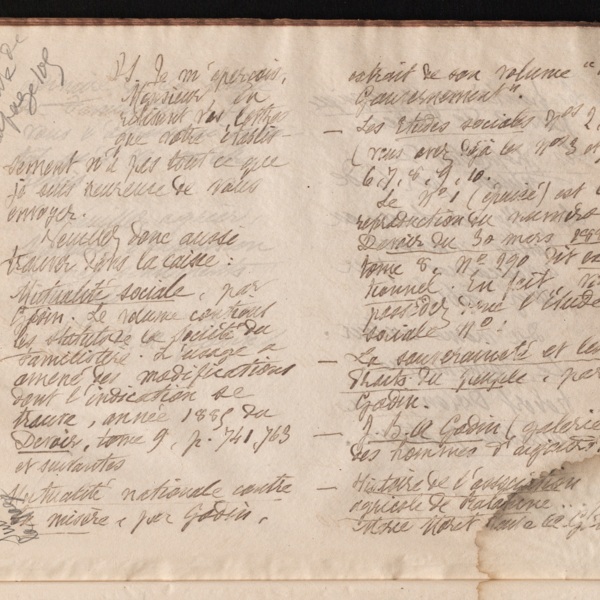 P.S. Je m'aperçois,
Monsieur, en
relisant vos lettres
que votre établis-
sement n'a pas tout ce que
je suis heureuse de vous
envoyer.
Veuillez donc aussi
trouver dans la caisse :
Mutualité sociale, par
Godin. Le volume contient
les statuts de la Société du
Familistère. L'usage a
amené des modifications
dont l'indication se
trouve, année 1885 du
Devoir, tome 9, p. 741, 763
et suivantes
Mutualité nationale contre
la misère, par Godin,
extrait de son volume "
Gouvernement".
— Les Etudes sociales nos 2,
(vous avez déjà les nos 3 et
6, 7, 8, 9, 10.
Le No 1 (épuisé) est
reproduction du numéro
Devoir du 30 mars
tome 8, No 290 dit
tionnel. En fait,
possédez donc l'Etude
sociale No
— La souveraineté et les
Droits du peuple, par
Godin.
— J. B. A. Godin (galerie
des hommes d'aujourd'
— Histoire de l'association
agricole de Ralahine.
Marie Moret